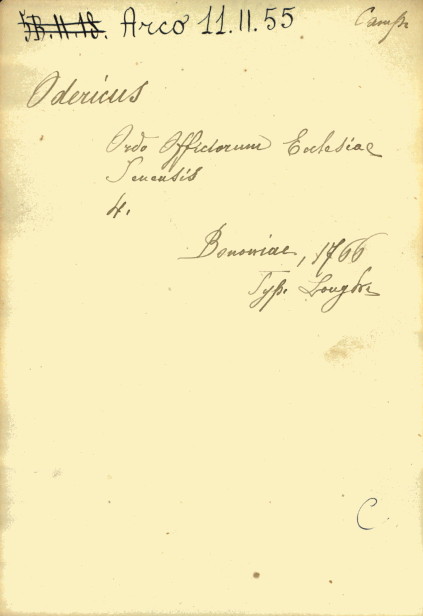 5B.II.18. Arco 11.II.55
Camp.
Odericus
Ordo Officiorum Ecclesiae
Senensis
4.
Bononiae, 1766
Typ. Longhi
C